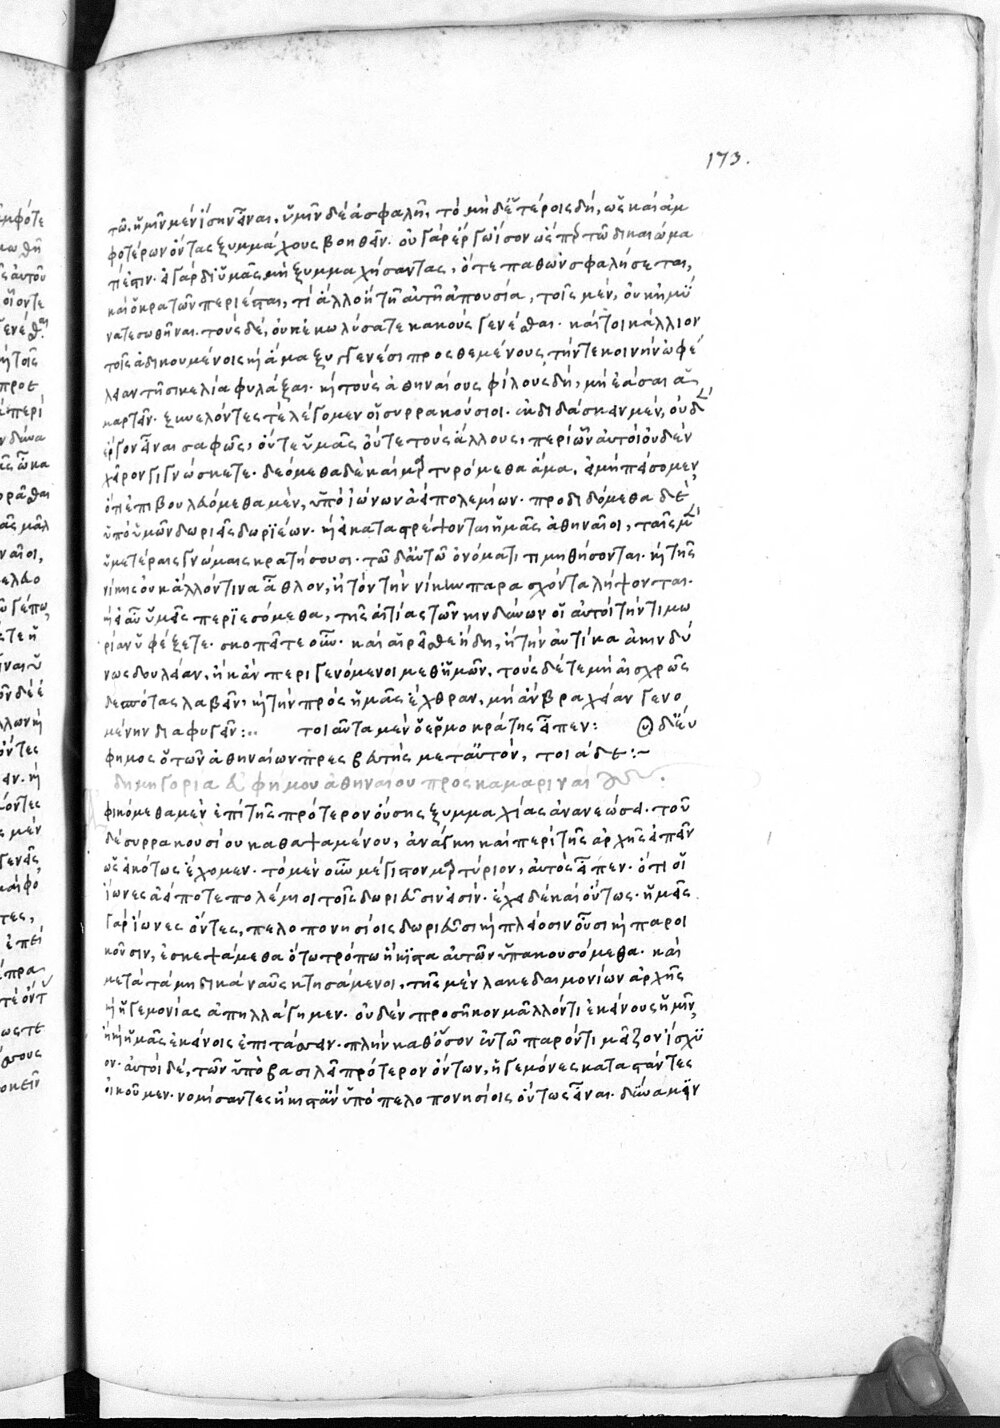 173.
τῶ. ἡμῖν μὲν ἴσην εἶναι, ὑμῖν δὲ ἀσφαλῆ. τὸ μηδετέροις δή, ὡς καὶ ἀμ
φοτέρων ὄντας ξυμμάχους βοηθεῖν. οὐ γὰρ ἔργω ἴσον ὥσπερ τῶ δικαιώμα
τί ἐστιν. εἰ γὰρ δι' ὑμᾶς μὴ ξυμμαχήσαντας, ὅτε παθὼν σφαλήσεται,
καὶ ὁ κρατῶν περιέσται, τί ἄλλο ἢ τῇ αὐτῇ ἀπουσία, τοῖς μὲν, οὐκ ἠμύ
νατε σωθῆναι. τοὺς δὲ, οὐκ ἐκωλύσατε κακοὺς γενέσθαι. καίτοι κάλλιον
τοῖς ἀδικουμένοις κ(αὶ) ἅμα ξυγγενέσι προσθεμένους, τήν τε κοινὴν ὠφέ
λειαν τῇ σικελία φυλάξαι. κ(αὶ) τοὺς ἀθηναίους φίλους δὴ, μὴ ἐᾶσαι ἁ
μαρτεῖν. ξυνελόντες τὲ λέγομεν οἱ συρρακούσιοι. ἐκδιδάσκειν μὲν, οὐδὲν
ἔργον εἶναι σαφῶς, οὔτε ὑμᾶς οὔτε τοὺς ἄλλους, περὶ ὧν αὐτοὶ οὐδὲν
χεῖρον γιγνώσκετε. δεόμεθα δὲ καὶ μαρτυρόμεθα ἅμα, εἰ μὴ πείσομεν,
ὅτι ἐπιβουλευόμεθα μὲν, ὑπὸ ἰώνων ἀεὶ πολεμίων. προδιδόμεθα δὲ
ὑπὸ ὑμῶν δωριεῖς δωριέων. κ(αὶ) εἰ καταστρέψονται ἡμᾶς ἀθηναῖοι, ταῖς μὲν
ὑμετέραις γνώμαις κρατήσουσι. τῶ δ' αὑτῶ ὀνόματι τιμηθήσονται. κ(αὶ) τῆς
νίκης οὐκ ἄλλόν τινα ἆθλον, ἢ τὸν τὴν νίκην παρασχόντα λήψονται.
κ(αὶ) εἰ αὖ ὑμεῖς περιεσόμεθα, τῆς αἰτίας τῶν κινδύνων οἱ αὐτοὶ τὴν τιμω
ρίαν ὑφέξετε. σκοπεῖτε οὖν. καὶ αἱρεῖσθε ἤδη, ἢ τὴν αὐτίκα ἀκινδύ
νως δουλείαν, ἢ κἂν περιγενόμενοι μεθ' ἡμῶν, τούς δέ τε μὴ αἰσχρῶς
δεσπότας λαβεῖν, κ(αὶ) τὴν πρὸς ἡμᾶς ἔχθραν, μὴ ἂν βραχεῖαν γενο
μένην διαφυγεῖν:.. τοιαῦτα μὲν ὁ ἑρμοκράτης εἶπεν: ὁ δ' εὔ
φημος ὁ τῶν ἀθηναίων πρεσβευτὴς μετ' αὐτὸν, τοιάδε:~
δημηγορία εὐφήμου ἀθηναίου πρὸς καμαριναίους.
φικόμεθα μὲν ἐπὶ τῆς πρότερον οὔσης ξυμμαχίας ἀνανεώσει. τοῦ
δὲ συρρακουσίου καθαψαμένου, ἀνάγκη καὶ περὶ τῆς ἀρχῆς εἰπεῖν
ὡς εἰκότως ἔχομεν. τὸ μὲν οὖν μέγιστον μαρτύριον, αὐτὸς εἶπεν. ὅτι οἱ
ἴωνες ἀεί ποτε πολέμιοι τοῖς δωριεῦσιν εἰσίν. ἔχει δὲ καὶ οὕτως. ἡμεῖς
γὰρ ἴωνες ὄντες, πελοπονησίοις δωριεῦσι κ(αὶ) πλέοσιν οὖσι κ(αὶ) παροι
κοῦσιν, ἐσκεψάμεθα ὅτω τρόπω ἥκιστα αὐτῶν ὑπακουσόμεθα. καὶ
μετὰ τὰ μηδικὰ ναῦς κτησάμενοι, τῆς μὲν λακεδαιμονίων ἀρχῆς
κ(αὶ) ἡγεμονίας ἀπηλλάγημεν. οὐδὲν προσῆκον μᾶλλόν τι ἐκείνους ἡμῖν,
ἢ κ(αὶ) ἡμᾶς ἐκείνοις ἐπιτάσσειν. πλὴν καθόσον ἐν τῶ παρόντι μεῖζον ἴσχυ
ον. αὐτοὶ δέ, τῶν ὑπὸ βασιλεῖ πρότερον ὄντων, ἡγεμόνες καταστάντες
οἰκοῦμεν. νομίσαντες ἥκιστ' ἂν ὑπὸ πελοπονησίοις οὕτως εἶναι. δύναμιν